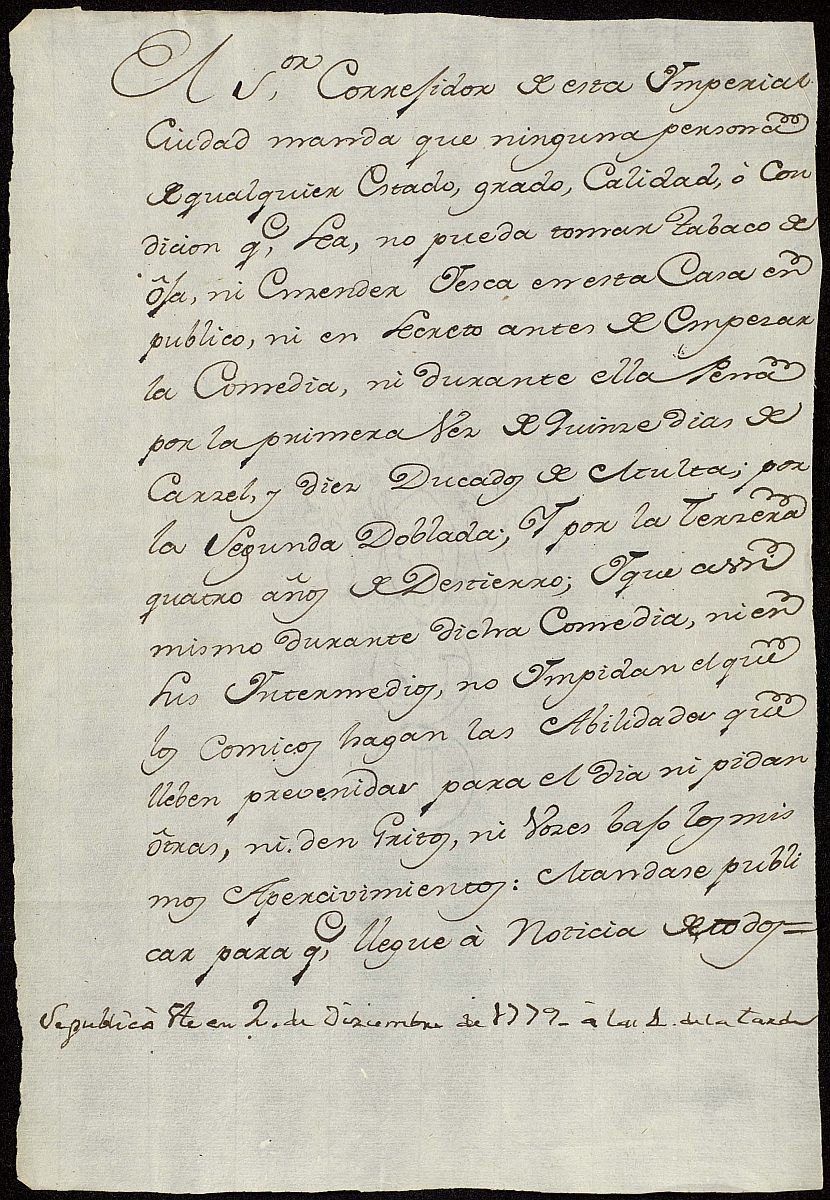 El S.or Corregidor de esta Ymperial
Ciudad manda que ninguna persona
de qualquier Estado, grado, Calidad, ò Con
dicion q.e sea, no pueda tomar tabaco de
oja, ni Enzender Yesca en esta Casa en
publico, ni en secreto antes de Empezar
la Comedia, ni durante ella Pena
por la primera Vez de Quinze dias de
Carzel, y diez Ducados de Multa; por
la Segunda Doblada; Y por la terzera
quatro años de Destierro; Y que assi
mismo durante dicha Comedia, ni en
sus Yntermedios, no Ympidan el que
los Comicos hagan las Abilidades que
lleben prevenidas para el dia ni pidan
ôtras, ni den Gritos, ni Vozes bajo los mis
mos Apercivimientos: Mandase publi
car para q.e llegue à Noticia de todos=
Se publicò en 2. de Diziembre de 1779 à las 4. de la tarde